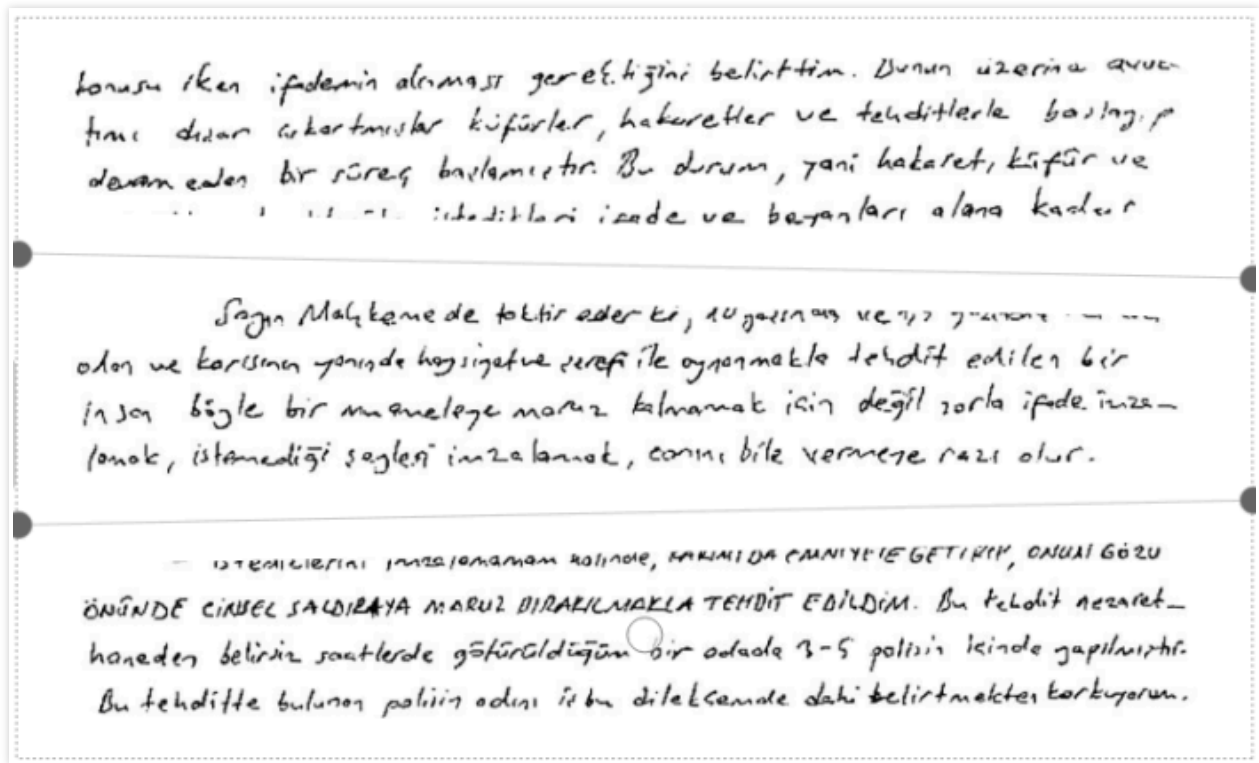 konusu iken ifademin alınması gerektiğini belirttim. Bunun üzerine avuka-
tımı dışarı çıkartmışlar küfürler, hakaretler ve tehditlerle başlayıp
devam eden bir süreç başlamıştır. Bu durum, yani hakaret, küfür ve
istedikleri ifade ve beyanları alana kadar
Sayın Mahkemede taktir eder ki,
olan ve karısının yanında haysiyet ve şerefi ile oynanmakla tehdit edilen bir
insan böyle bir muameleye maruz kalmamak için değil zorla ifade imza-
lamak, istemediği şeyleri imzalamak, canını bile vermeye razı olur.
istediklerini imzalamamam halinde, KARIMI DA EMNİYETE GETİRİP, ONUN GÖZÜ
ÖNÜNDE CİNSEL SALDIRAYA MARUZ BIRAKILMAKLA TEHDİT EDİLDİM. Bu tehdit nezaret-
haneden belirsiz saatlerde götürüldüğüm bir odada 3-5 polisin içinde yapılmıştır.
Bu tehditte bulunan polisin adını iş bu dilekçemde dahi belirtmekten korkuyorum.